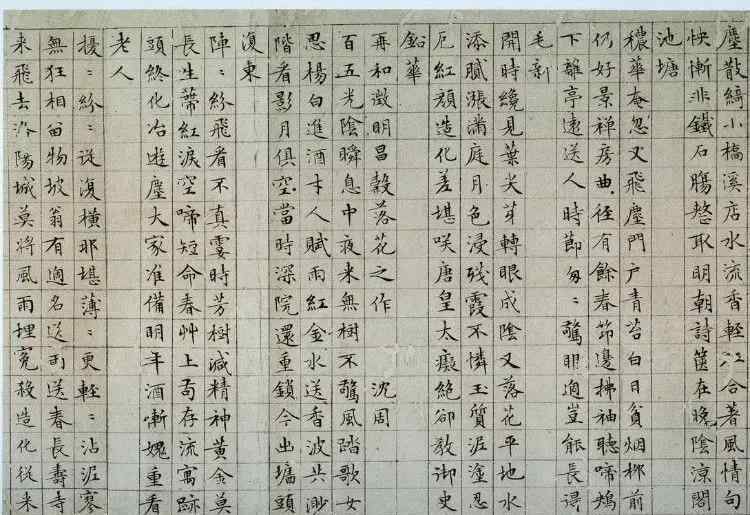 塵散縞小橋溪店水流香輕合著風情句
怏慚非鐵石腸整取明朝詩篋在晚陰涼閣
池塘
穠華奄忽又飛塵門戶青苔白日貧烟柳前
仍好景禪房曲徑有餘春笻邊拂袖聽啼鴂
下離亭遠送人時節匆〻驚眀適豈能長得
毛新
開時纔見葉尖芽轉眼成陰又落花平地水
添膩漲滿庭月色浸殘霞不憐玉質泥塗忍
厄紅顏造化差堪咲唐皇太癡絕卻教御史
鉛華
再和徵明昌穀落花之作 沈周
百五光陰瞬息中夜來無樹不驚風踏歌女
忍楊白進酒才人賦雨紅金水送香波共渺
階看影月俱空當時深院還重鎖今出墻頭
復東
陣〻紛飛看不真霎時芳樹減精神黃金莫
長生蒂紅淚空啼短命春艸上苟存流寓跡
頭終化冶遊塵大家准備明年酒慚愧重看
老人
擾〻紛〻從復橫那堪薄〻更輕〻沾泥寥
無狂相畱物坡翁有過名送雨送春長壽寺
来飛去洛陽城莫將風雨埋冤殺造化從来